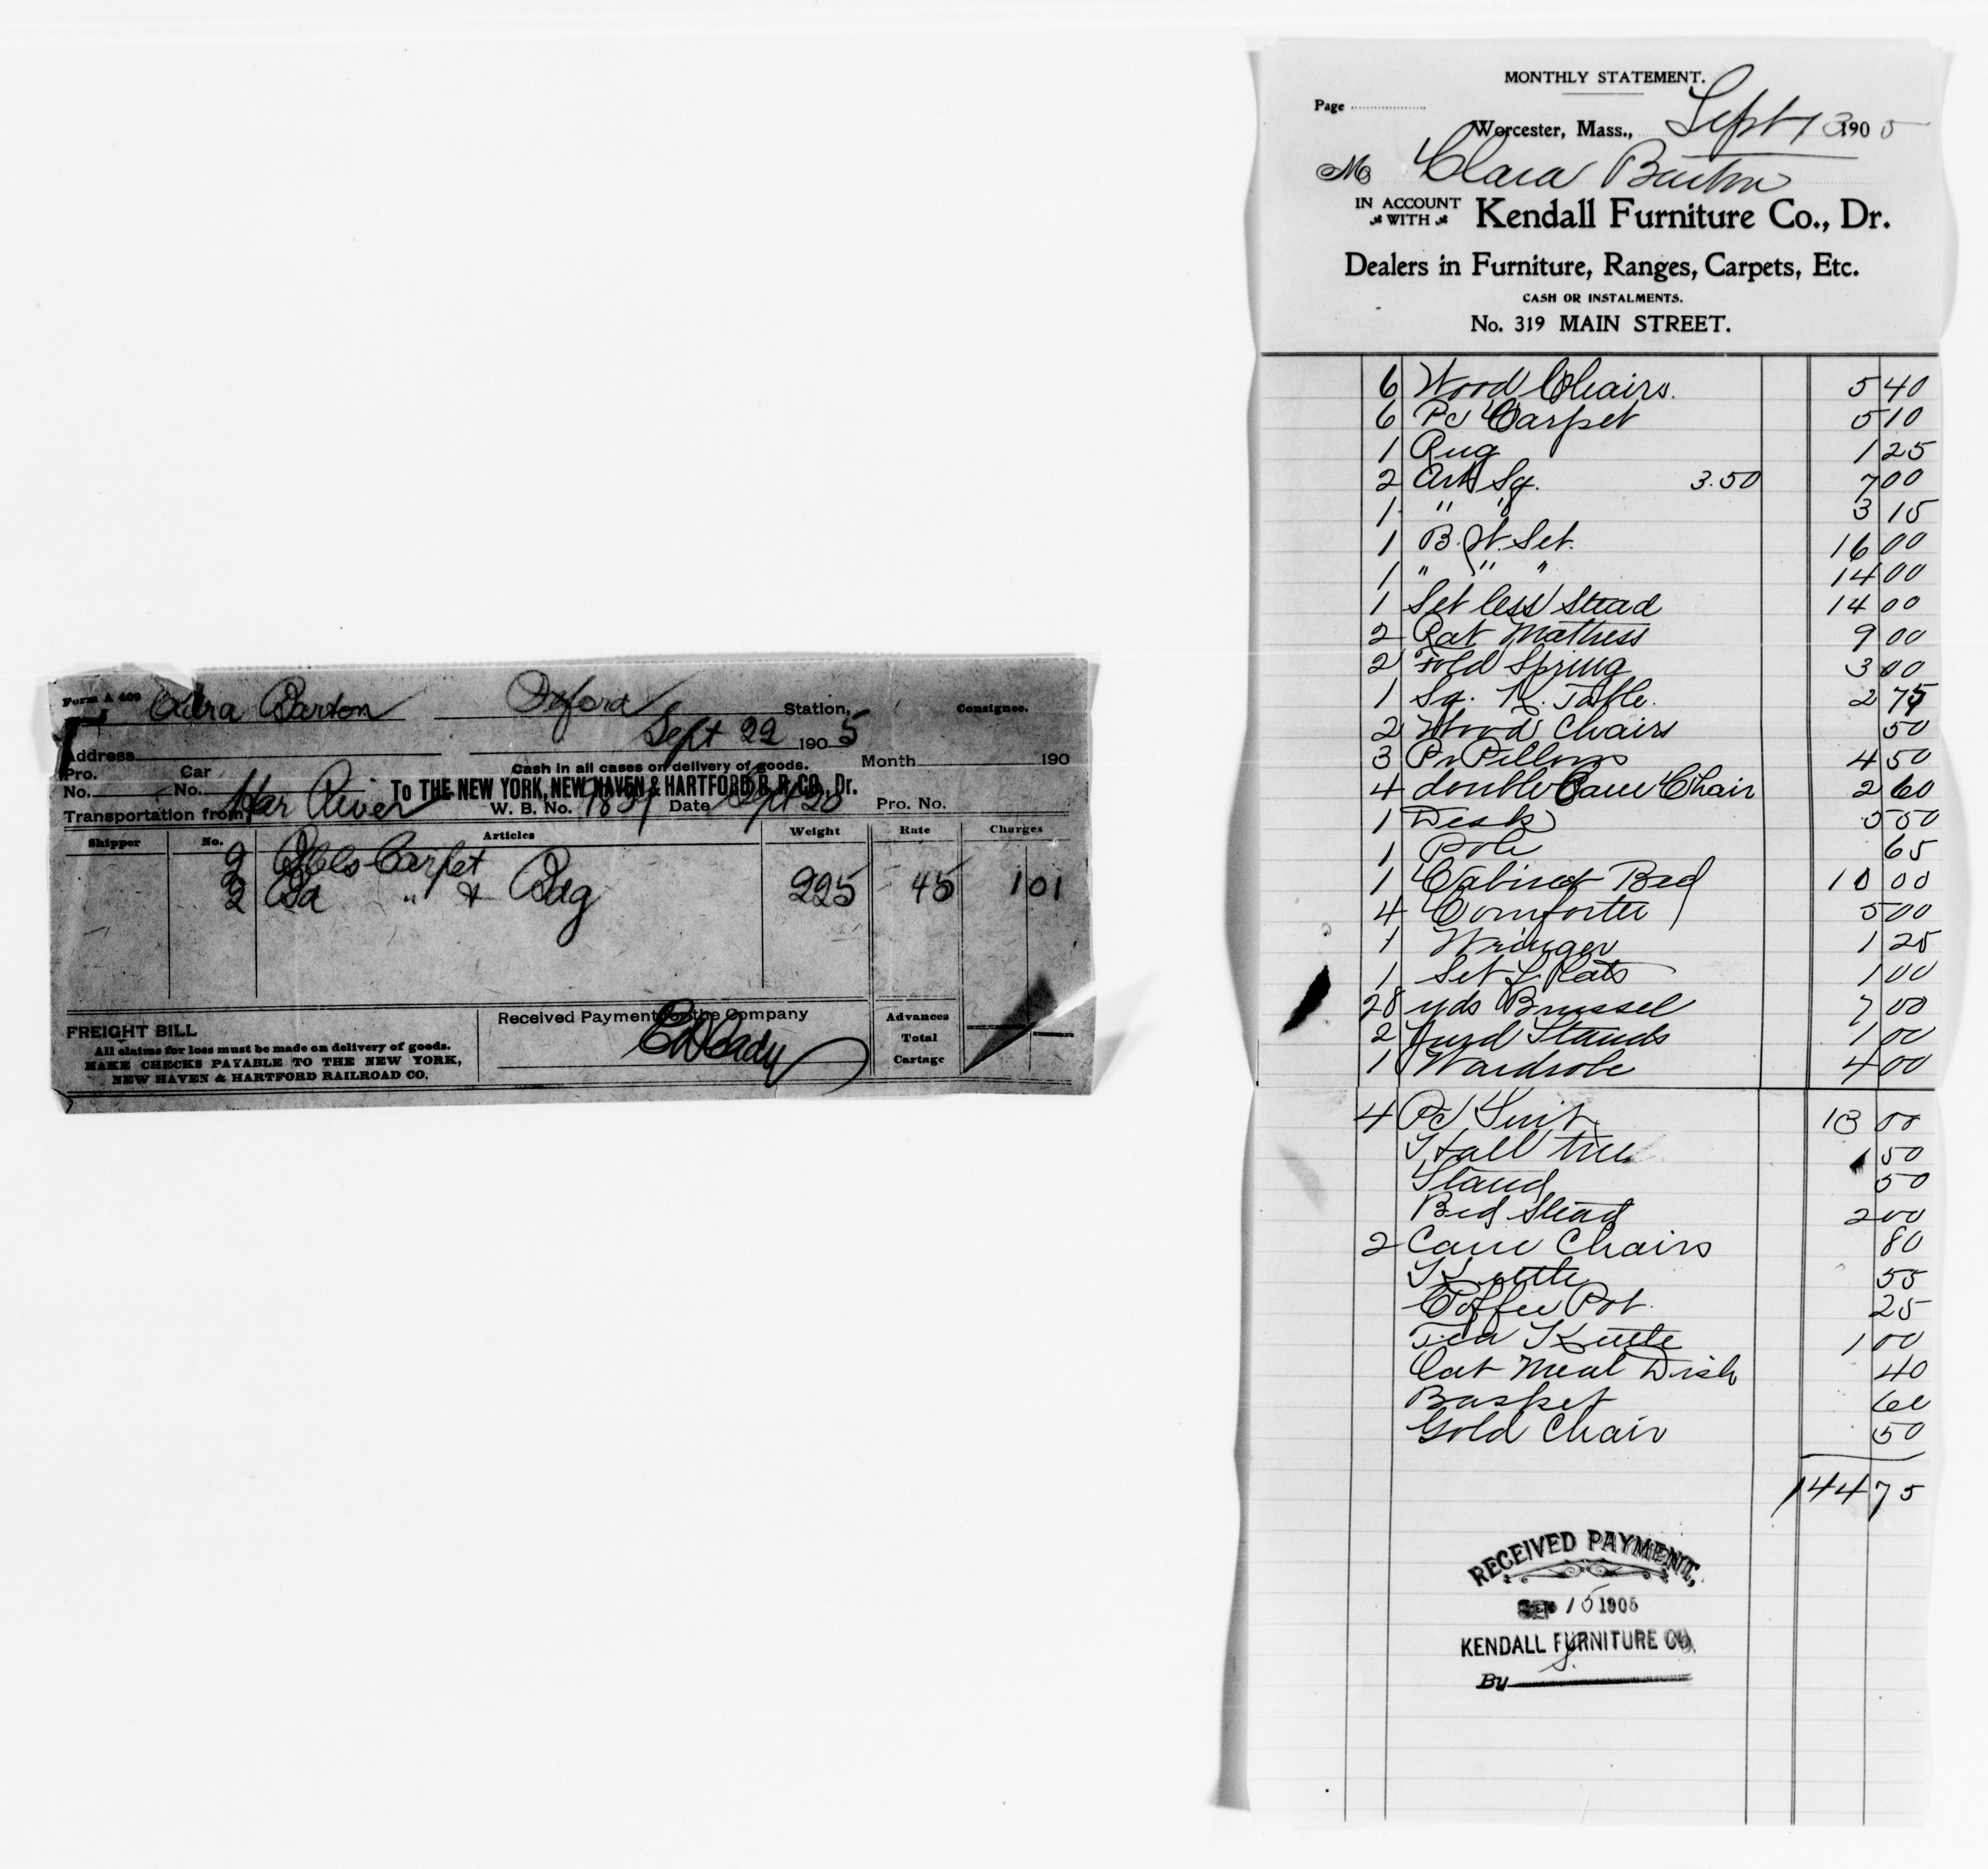 Form A 409
Clara Barton Oxford Station, Consignee.
Sept 22 1905
Address
Cash in all cases on delivery of goods. Month 190
Pro. No. Car No.
To THE NEW YORK, NEW HAVEN & HARTFORD R. R. CO., Dr.
Transportation from Har River W. B. No. 1839 Date Sept 20 Pro. No.
Shipper No. Articles Weight Rate Charges
2 Bbls Carpet
2 Bd " & Bag 225 45 1 01
FREIGHT BILL
All claims for loss must be made on delivery of goods.
MAKE CHECKS PAYABLE TO THE NEW YORK,
NEW HAVEN & HARTFORD RAILROAD CO.
Received Payment for the Company
Advances
Total
Cartage
MONTHLY STATEMENT.
Page
Worcester, Mass., Sept 13 1905
M Clara Barton
IN ACCOUNT WITH Kendall Furniture Co., Dr.
Dealers in Furniture, Ranges, Carpets, Etc.
CASH OR INSTALMENTS.
No. 319 MAIN STREET.
6 Wood Chairs. 5 40
6 Pc Carpet 5 10
1 Rug 1 25
2 Art Sq. 3.50 7 00
1 " " 3 15
1 B. W. Set. 16 00
1 " " " 14 00
1 Set less Stead 14 00
2 Rat Mattress 9 00
2 Fold Spring 3 00
1 Sq. K. Table. 2 75
2 Wood Chairs 50
3 Pr Pillows 4 50
4 double Cane Chair 2 60
1 Desk 5 50
1 Pole 65
1 Cabinet Bed 10 00
4 Comforter 5 00
1 Wringer 1 25
1 Set Flats 1 00
28 yds Brussel 7 00
2 Stands 1 00
1 Wardrobe 4 00
4 Pc Suit 13 00
Hall tree 1 50
Stand 50
Bed Stead 2 00
2 Cane Chairs 80
Kettle 55
Coffee Pot. 25
Tea Kettle 1 00
Oat Meal Dish 40
Basket 60
Gold Chair 50
144 75
RECEIVED PAYMENT,
SEP 15 1905
KENDALL FURNITURE CO.
By